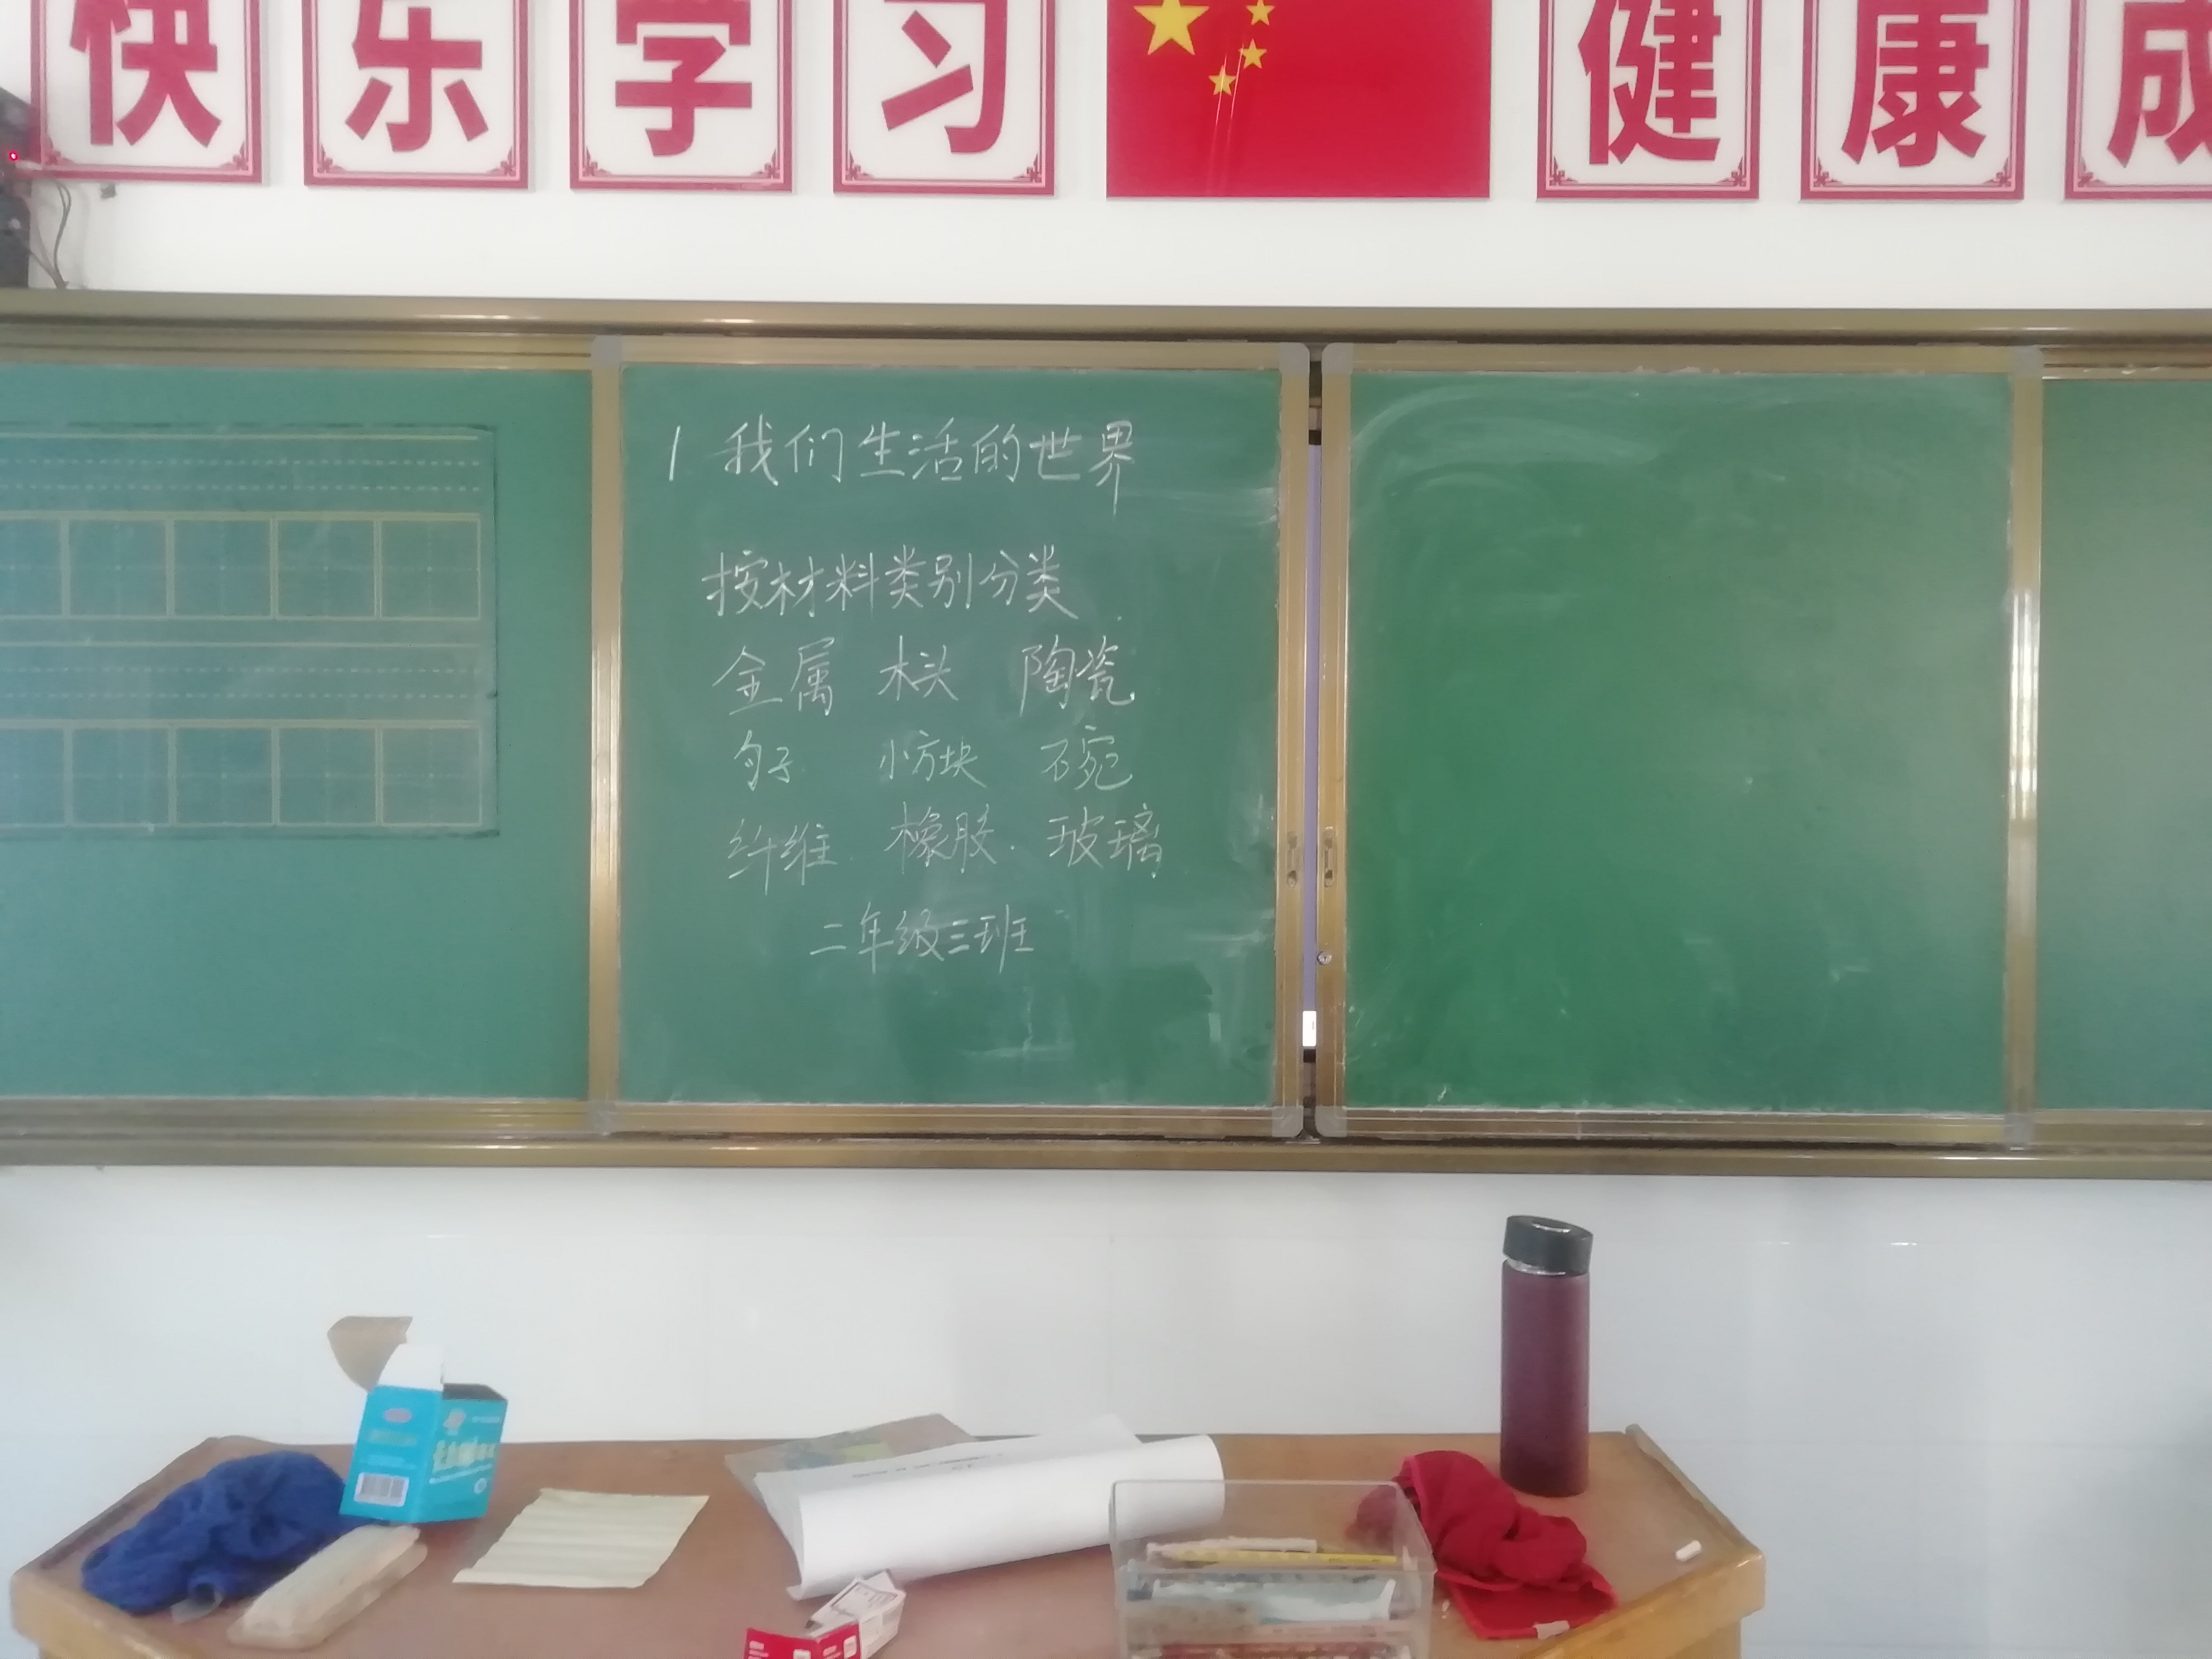 快乐学习 健康成
1 我们生活的世界
按材料类别分类
金属 木头 陶瓷
勺子 小方块 碗
纤维 橡胶 玻璃
二年级三班